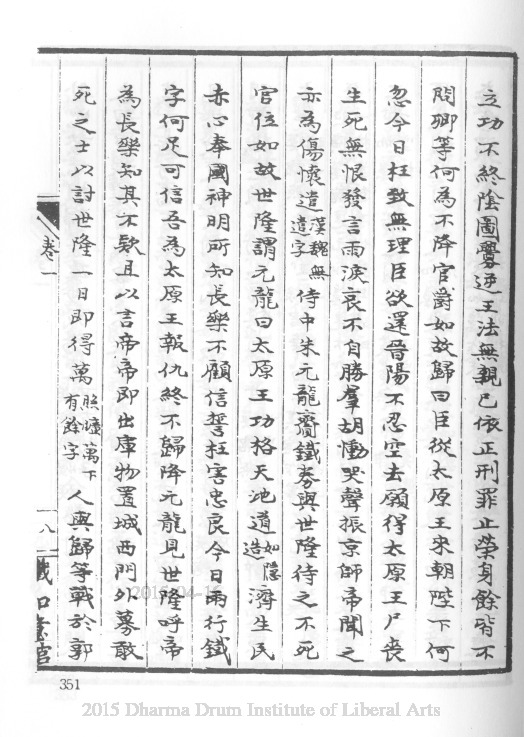 立功不終陰圖釁逆王法無親已依正刑罪止榮身餘皆不
問卿等何為不降官爵如故歸曰臣從太原王來朝陛下何
忽今日枉致無理臣欲還晉陽不忍空去願得太原王尸喪
生死無恨發言雨淚哀不自勝羣胡慟哭聲振京師帝聞之
亦為傷懷遣漢魏無遣字侍中朱元龍齎鐵券與世隆待之不死
官位如故世隆謂元龍曰太原王功格天地道如隱造濟生民
赤心奉國神明所知長樂不顧信誓枉害忠良今日兩行鐵
字何足可信吾為太原王報仇終不歸降元龍見世隆呼帝
為長樂知其不款且以言帝帝即出庫物置城西門外募敢
死之士以討世隆一日即得萬照曠萬下有餘字人與歸等戰於郭
卷一
八
351
2015-04-14
2015 Dharma Drum Institute of Liberal Arts